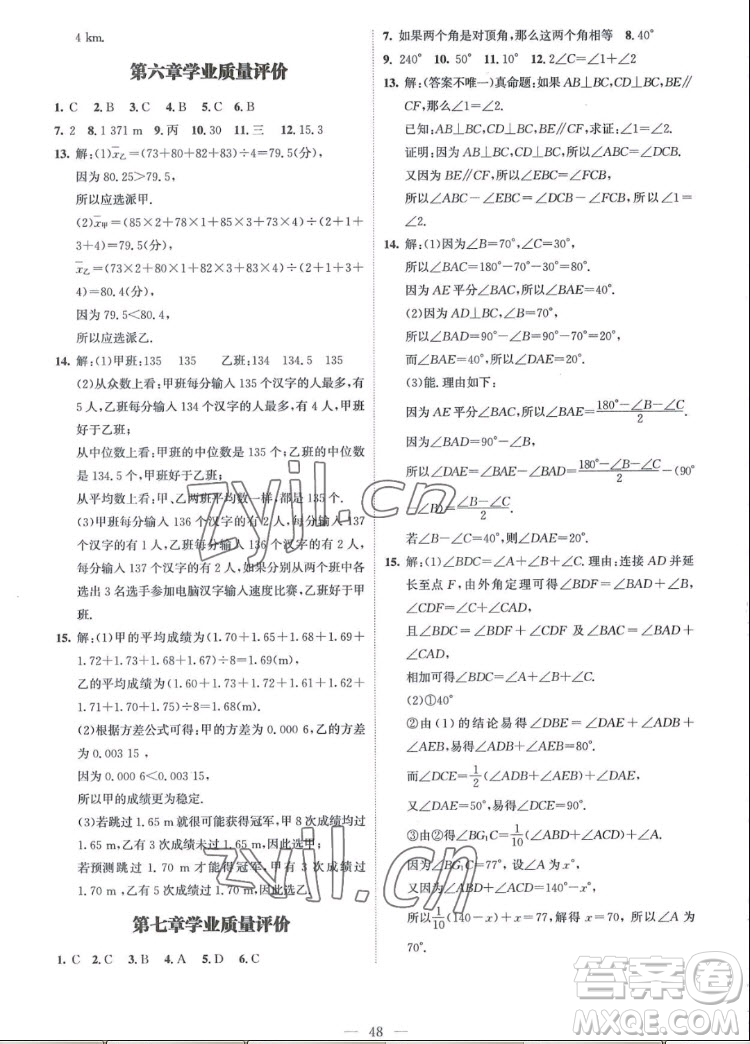 4 km.
第六章学业质量评价
1. C　2. B　3. C　4. B　5. C　6. B
7. 2　8. 1 371 m　9. 丙　10. 30　11. 三　12. 15.3
13. 解:(1)x̄乙=(73+80+82+83)÷4=79.5(分),
因为 80.25>79.5,
所以应选派甲.
(2)x̄甲=(85×2+78×1+85×3+73×4)÷(2+1+
3+4)=79.5(分),
x̄乙=(73×2+80×1+82×3+83×4)÷(2+1+3+
4)=80.4(分),
因为 79.5<80.4,
所以应选派乙.
14. 解:(1)甲班:135　135　乙班:134　134.5　135
(2)从众数上看:甲班每分输入 135 个汉字的人最多,有
5 人,乙班每分输入 134 个汉字的人最多,有 4 人,甲班
好于乙班;
从中位数上看:甲班的中位数是 135 个,乙班的中位数
是 134.5 个,甲班好于乙班;
从平均数上看:甲、乙两班平均数一样,都是 135 个.
(3)甲班每分输入 136 个汉字的有 2 人,每分输入 137
个汉字的有 1 人,乙班每分输入 136 个汉字的有 1 人,
每分输入 137 个汉字的有 2 人,如果分别从两个班中各
选出 3 名选手参加电脑汉字输入速度比赛,乙班好于甲
班.
15. 解:(1)甲的平均成绩为(1.70+1.65+1.68+1.69+
1.72+1.73+1.68+1.67)÷8=1.69(m),
乙的平均成绩为(1.60+1.73+1.72+1.61+1.62+
1.71+1.70+1.75)÷8=1.68(m).
(2)根据方差公式可得:甲的方差为 0.000 6,乙的方差
为 0.003 15,
因为 0.000 6<0.003 15,
所以甲的成绩更为稳定.
(3)若跳过 1.65 m 就很可能获得冠军,甲 8 次成绩都跳过
1.65 m,乙有 3 次成绩未过 1.65 m,因此选甲;
若预测跳过 1.70 m 才能得冠军,甲有 3 次成绩跳过
1.70 m,乙有 5 次成绩跳过 1.70 m,因此选乙.
第七章学业质量评价
1. C　2. C　3. B　4. A　5. D　6. C
7. 如果两个角是对顶角,那么这两个角相等　8. 40°
9. 240°　10. 50°　11. 10°　12. 2∠C=∠1+∠2
13. 解:(答案不唯一)真命题:如果 AB⊥BC,CD⊥BC,BE∥
CF,那么∠1=∠2.
已知:AB⊥BC,CD⊥BC,BE∥CF,求证:∠1=∠2.
证明:因为 AB⊥BC,CD⊥BC,所以∠ABC=∠DCB.
又因为 BE∥CF,所以∠EBC=∠FCB,
所以∠ABC-∠EBC=∠DCB-∠FCB,所以∠1=
∠2.
14. 解:(1)因为∠B=70°,∠C=30°,
所以∠BAC=180°-70°-30°=80°.
因为 AE 平分∠BAC,所以∠BAE=40°.
(2)因为 AD⊥BC,∠B=70°,
所以∠BAD=90°-∠B=90°-70°=20°.
而∠BAE=40°,所以∠DAE=20°.
(3)能. 理由如下:
因为 AE 平分∠BAC,所以∠BAE=(180°-∠B-∠C)/2.
因为∠BAD=90°-∠B,
所以∠DAE=∠BAE-∠BAD=(180°-∠B-∠C)/2-(90°
-∠B)=(∠B-∠C)/2.
若∠B-∠C=40°,则∠DAE=20°.
15. 解:(1)∠BDC=∠A+∠B+∠C. 理由:连接 AD 并延
长至点 F,由外角定理可得∠BDF=∠BAD+∠B,
∠CDF=∠C+∠CAD,
且∠BDC=∠BDF+∠CDF 及∠BAC=∠BAD+
∠CAD,
相加可得∠BDC=∠A+∠B+∠C.
(2)①40°
②由(1)的结论易得∠DBE=∠DAE+∠ADB+
∠AEB,易得∠ADB+∠AEB=80°.
而∠DCE=1/2(∠ADB+∠AEB)+∠DAE,
又∠DAE=50°,所以∠DCE=90°.
③由②得∠BG₁C=1/10(∠ABD+∠ACD)+∠A.
因为∠BG₁C=77°,设∠A 为 x°,
又因为∠ABD+∠ACD=140°-x°,
所以 1/10(140-x)+x=77,解得 x=70,所以∠A 为
70°.
48
zyjl.cn
zyjl.cn
答案圈
MXQE.COM